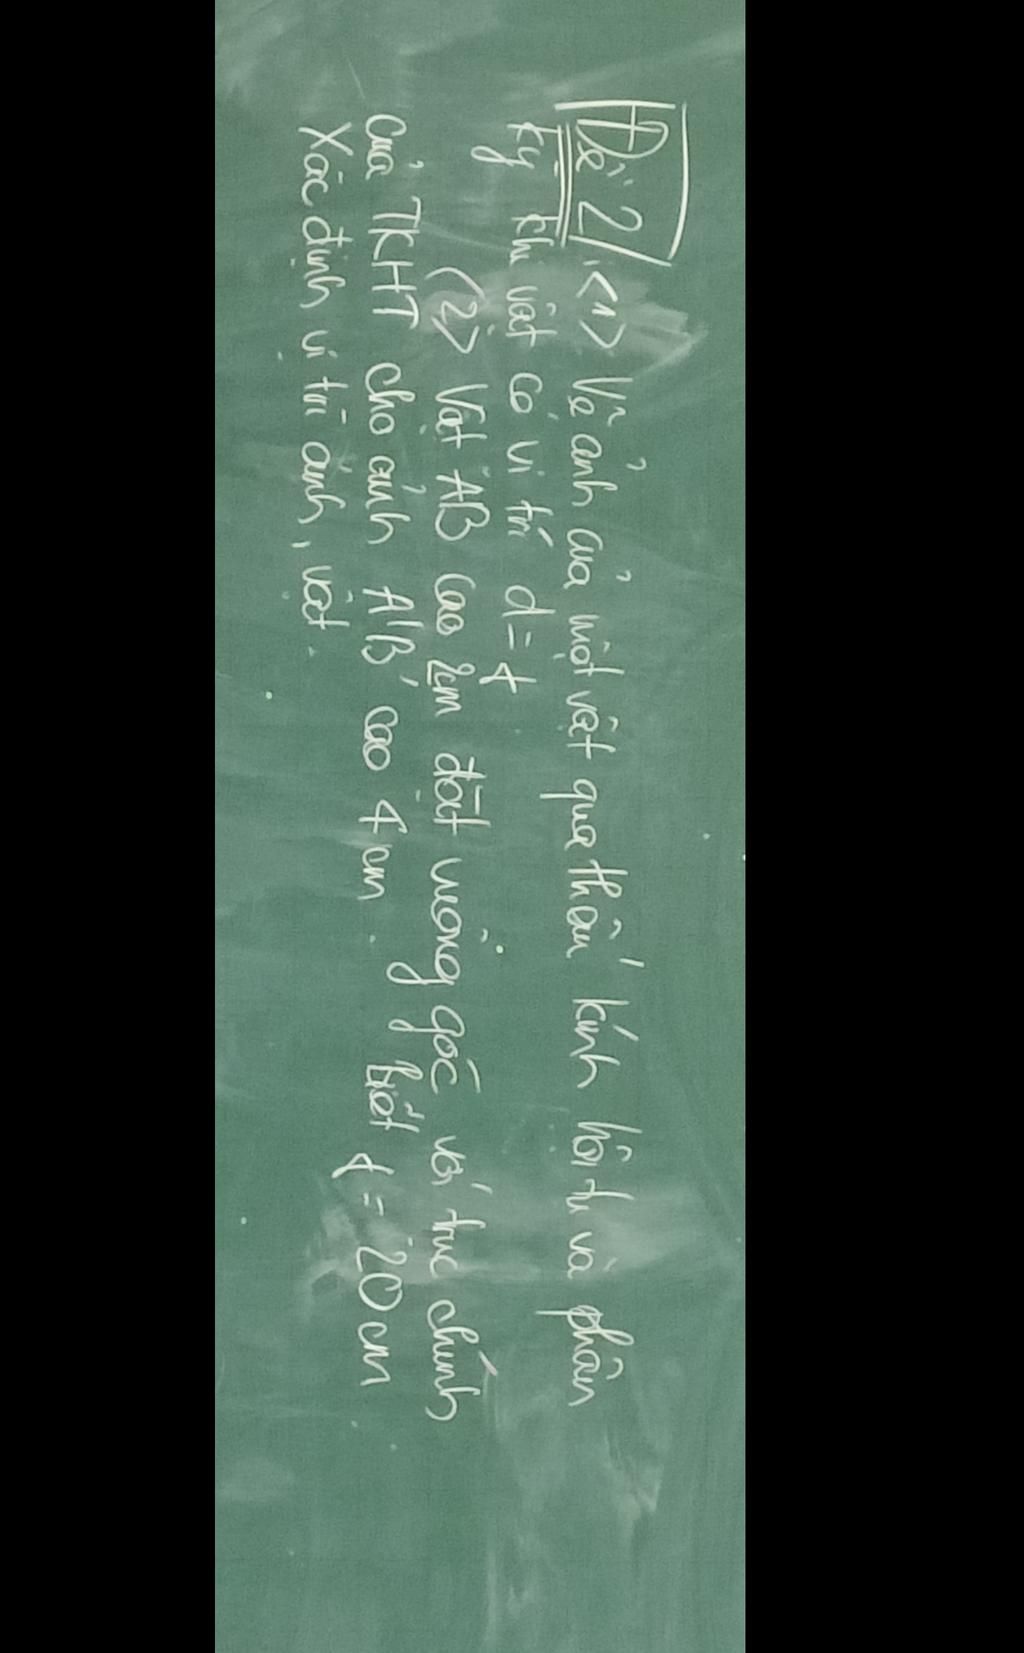 Đề 2/ <1> Vẽ ảnh của một vật qua thấu kính hội tụ và phân
kỳ khi vật có vị trí d = f
<2> Vật AB cao 2cm đặt vuông góc với trục chính
của TKHT cho ảnh A'B' cao 4cm. biết f = 20cm
Xác định vị trí ảnh, vật.